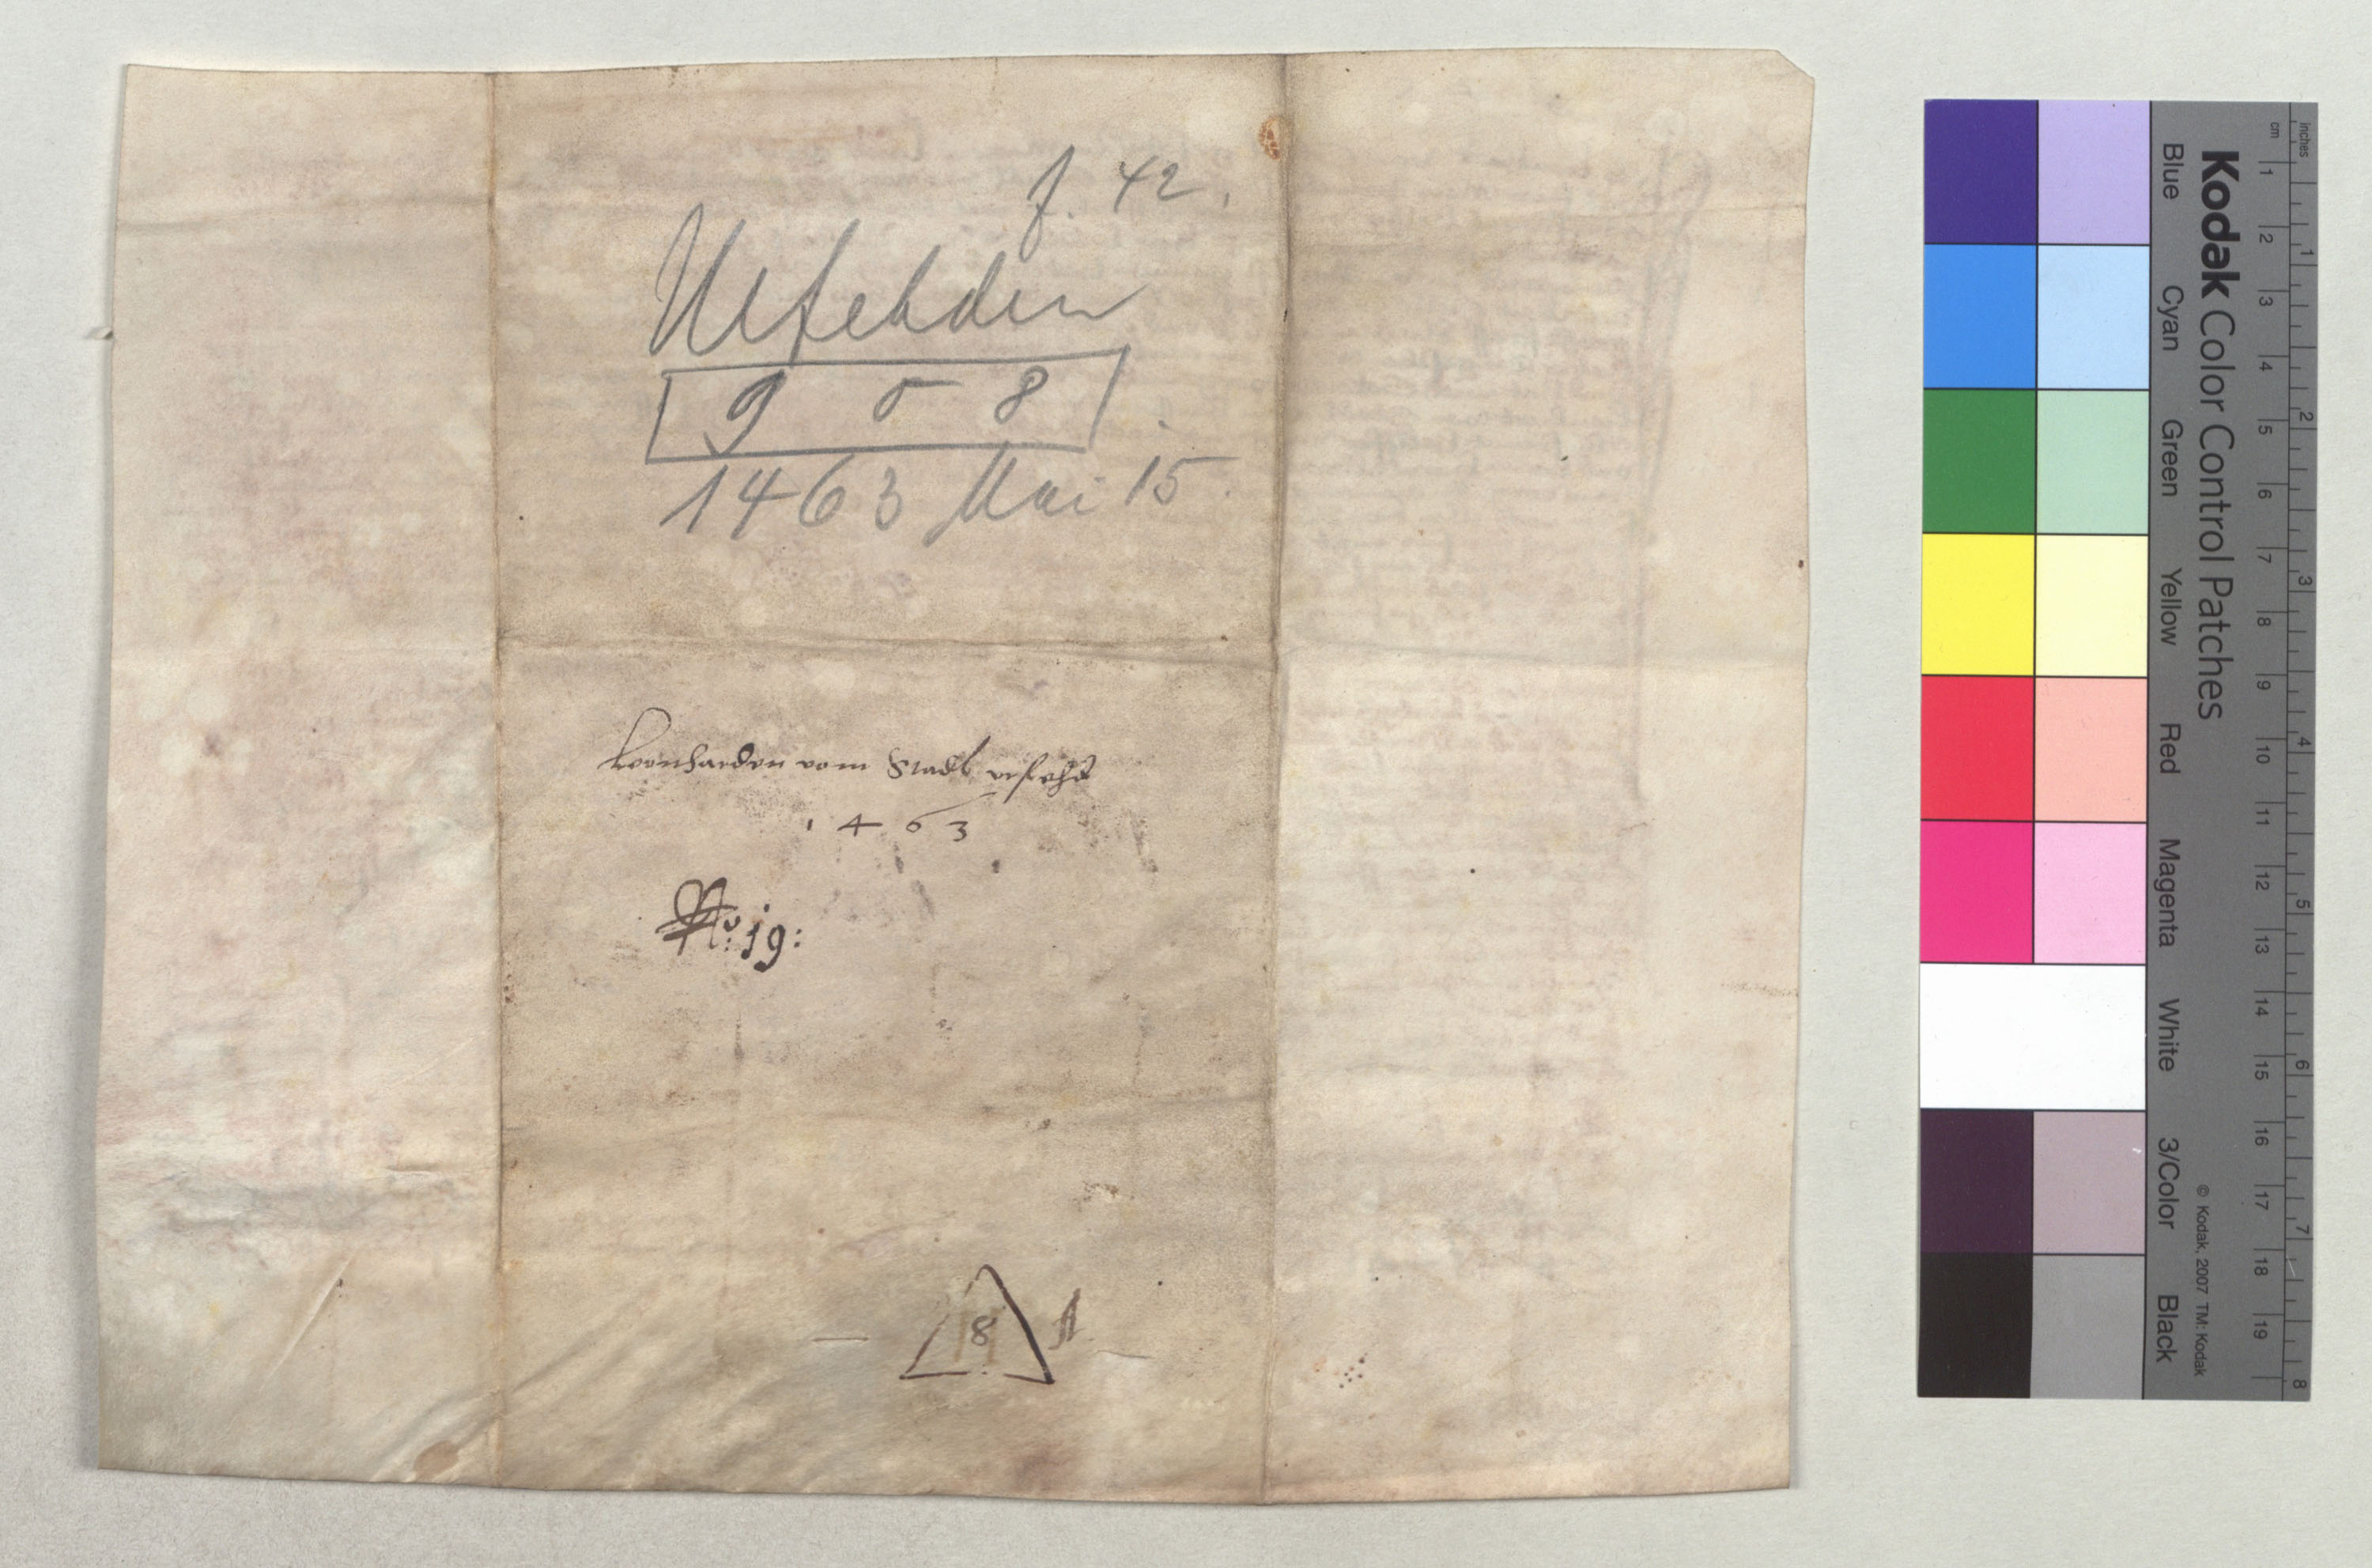 f. 42.
Urfehden
958
1463 Mai 15.
Leonharden vom Stadl urfehd
1463
No: 19:
8
Kodak Color Control Patches
Blue Cyan Green Yellow Red Magenta White 3/Color Black
© Kodak, 2007 TM: Kodak
cm 1 2 3 4 5 6 7 8 9 10 11 12 13 14 15 16 17 18 19
inches 1 2 3 4 5 6 7 8